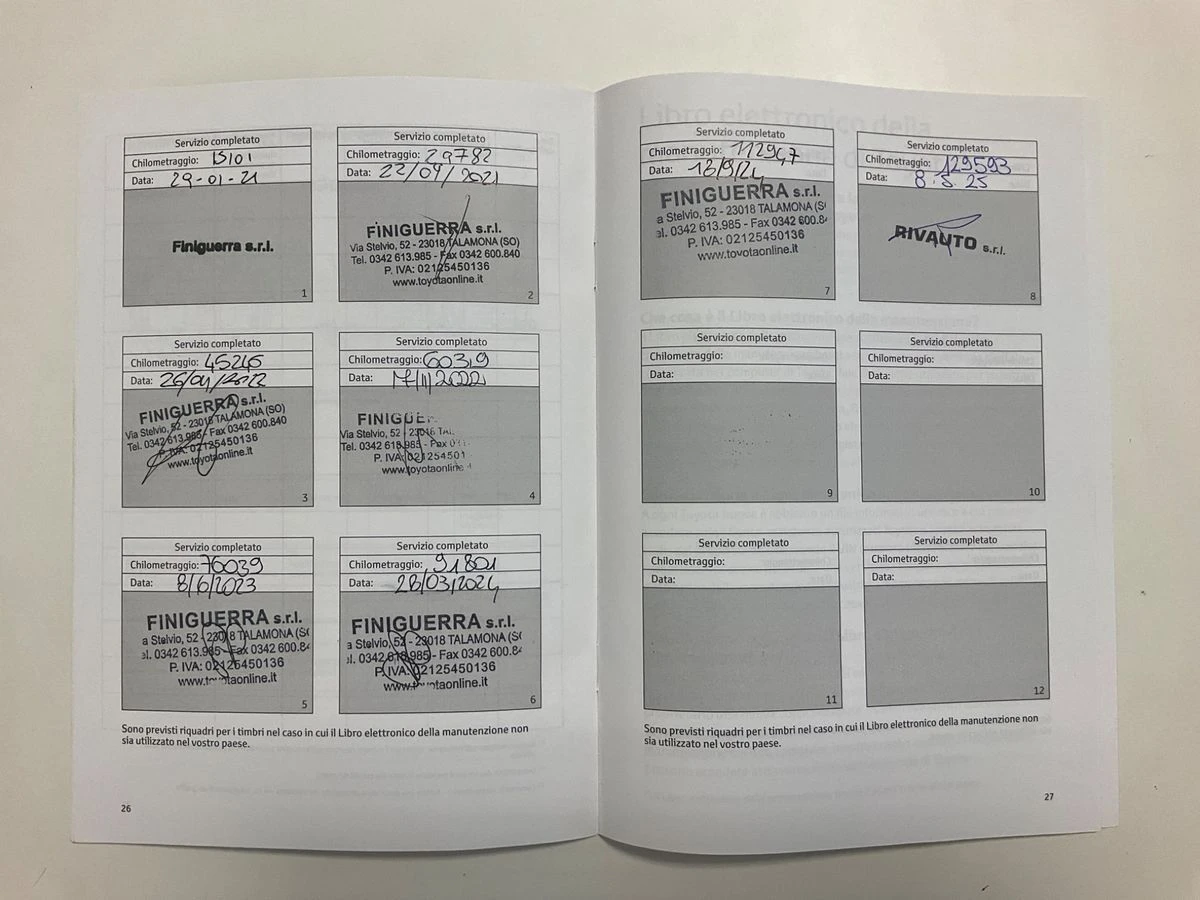 Servizio completato
Chilometraggio: 15101
Data: 29-01-21
Finiguerra s.r.l.
1
Servizio completato
Chilometraggio: 29782
Data: 22/09/2021
FINIGUERRA s.r.l.
Via Stelvio, 52 - 23018 TALAMONA (SO)
Tel. 0342 613.985 - Fax 0342 600.840
P. IVA: 02125450136
www.toyotaonline.it
2
Servizio completato
Chilometraggio: 45245
Data: 26/04/2022
FINIGUERRA s.r.l.
Via Stelvio, 52 - 23018 TALAMONA (SO)
Tel. 0342 613.985 - Fax 0342 600.840
P. IVA: 02125450136
www.toyotaonline.it
3
Servizio completato
Chilometraggio:
Data: 17/11/2022
Via Stelvio, 52 - 23018
Tel. 0342 613.985 - Fax
P. IVA:
www.toyotaonline
4
Servizio completato
Chilometraggio: 76039
Data: 8/6/2023
FINIGUERRA s.r.l.
a Stelvio, 52 - 23018 TALAMONA (SO
el. 0342 613.985 - Fax 0342 600.84
P. IVA: 02125450136
5
Servizio completato
Chilometraggio: 91801
Data: 28/03/2024
FINIGUERRA s.r.l.
a Stelvio, 52 - 23018 TALAMONA (SO
el. 0342 613.985 - Fax 0342 600.84
P. IVA: 02125450136
6
Sono previsti riquadri per i timbri nel caso in cui il Libro elettronico della manutenzione non
sia utilizzato nel vostro paese.
26
Servizio completato
Chilometraggio:
Data: 18/9/24
FINIGUERRA s.r.l.
a Stelvio, 52 - 23018 TALAMONA (SO
el. 0342 613.985 - Fax 0342 600.84
P. IVA: 02125450136
www.toyotaonline.it
7
Servizio completato
Chilometraggio: 129593
Data: 8.5.25
RIVAUTO s.r.l.
8
Servizio completato
Chilometraggio:
Data:
9
Servizio completato
Chilometraggio:
Data:
10
Servizio completato
Chilometraggio:
Data:
11
Servizio completato
Chilometraggio:
Data:
12
Sono previsti riquadri per i timbri nel caso in cui il Libro elettronico della manutenzione non
sia utilizzato nel vostro paese.
27